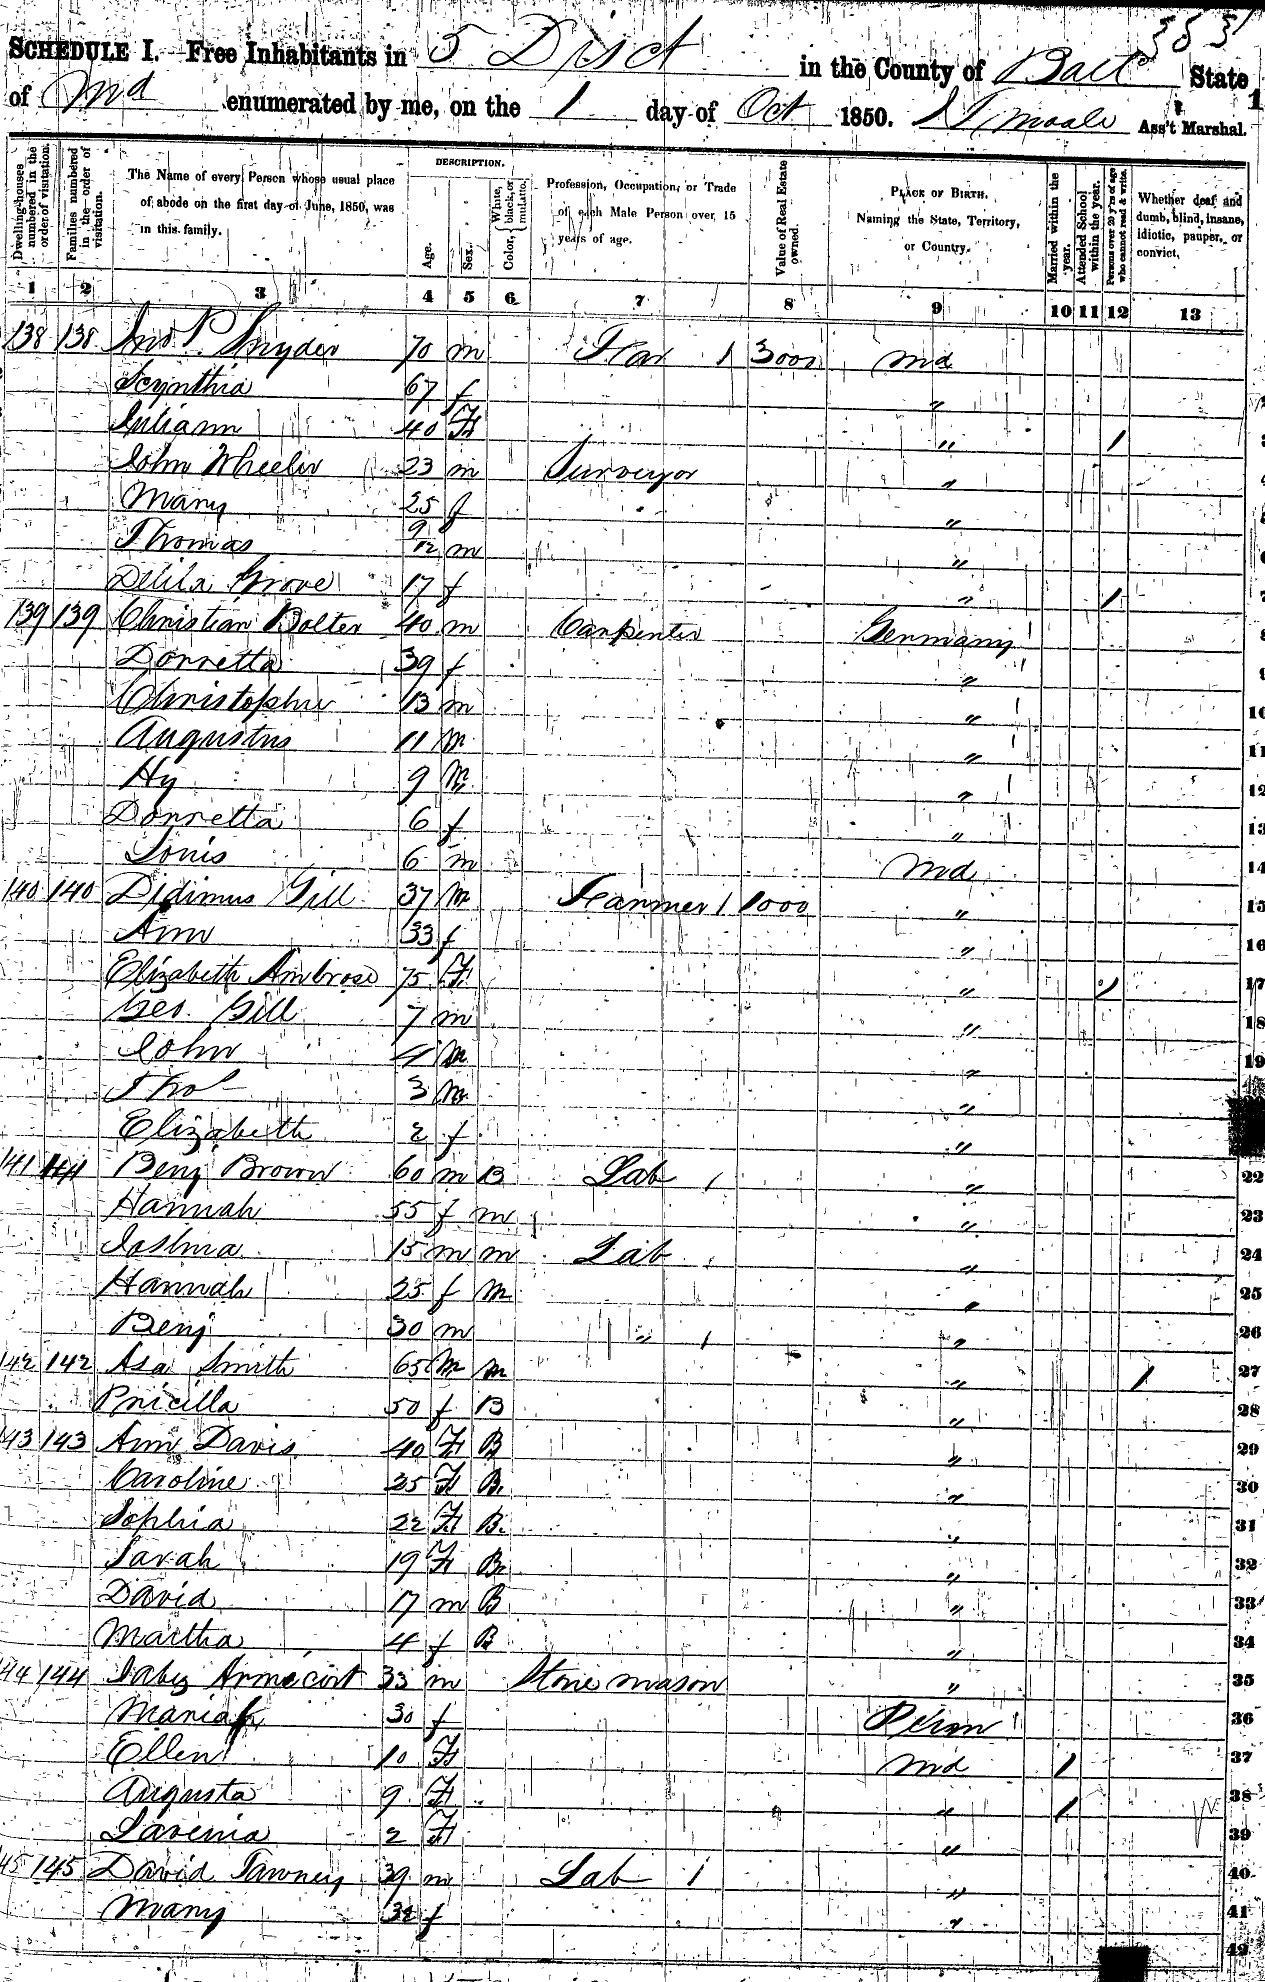 353
SCHEDULE I. Free Inhabitants in 5 Disct in the County of Balt State
of Md enumerated by me, on the 1 day of Oct 1850. Ass't Marshal.
Dwelling-houses numbered in the order of visitation.
Families numbered in the order of visitation.
The Name of every Person whose usual place of abode on the first day of June, 1850, was in this family.
DESCRIPTION.
Age.
Sex.
Color, White, black, or mulatto.
Profession, Occupation, or Trade of each Male Person over 15 years of age.
Value of Real Estate owned.
PLACE OF BIRTH. Naming the State, Territory, or Country.
Married within the year.
Attended School within the year.
Persons over 20 y'rs of age who cannot read & write.
Whether deaf and dumb, blind, insane, idiotic, pauper, or convict.
1 2 3 4 5 6 7 8 9 10 11 12 13
138 138 Jno P Snyder 70 m Far 1 3000 Md
Scynthia 67 f "
Juliann 40 F " 1
John Wheeler 23 m Surveyor "
Mary 25 f "
Thomas 9/12 m "
Delila Grove 17 f " 1
139 139 Christian Bolter 40 m Carpenter Germany
Dorretta 39 f "
Christopher 13 m "
Augustus 11 M "
Hy 9 M "
Dorretta 6 f "
Louis 6 m Md
140 140 Didimus Gill 37 M Farmer 1 1000 "
Ann 33 f "
Elizabeth Ambrose 75 F " 1
Geo. Gill 7 m "
John 4 M "
Thos 3 M "
Elizabeth 2 f "
141 141 Benj Brown 60 m B Lab 1 "
Hannah 55 f m "
Joshua 15 m m Lab "
Hannah 25 f M "
Benj 30 m " 1 "
142 142 Asa Smith 65 M m " 1
Pricilla 50 f B "
43 143 Ann Davis 40 F B "
Caroline 25 F B "
Sophia 22 F B "
Sarah 19 F B "
David 17 m B "
Martha 4 f B "
44 144 Jabez Armacost 33 m Stone mason "
Maria 30 f
Ellen 10 F Md 1
Augusta 9 F " 1
Lavenia 2 F "
45 145 David Tawney 39 m Lab 1 "
Mary 32 f "